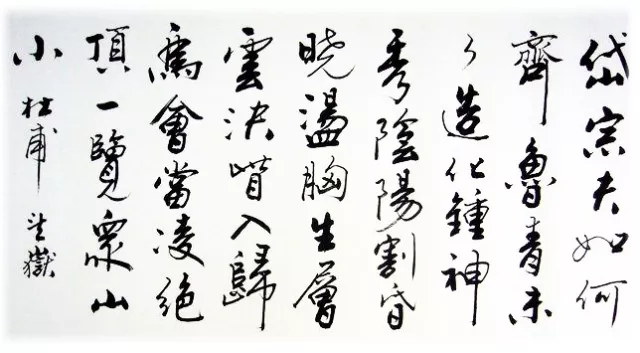 岱宗夫如何
齊魯青未
了造化鍾神
秀陰陽割昏
曉盪胸生層
雲決眥入歸
鳥會當凌絕
頂一覽眾山
小 杜甫望嶽